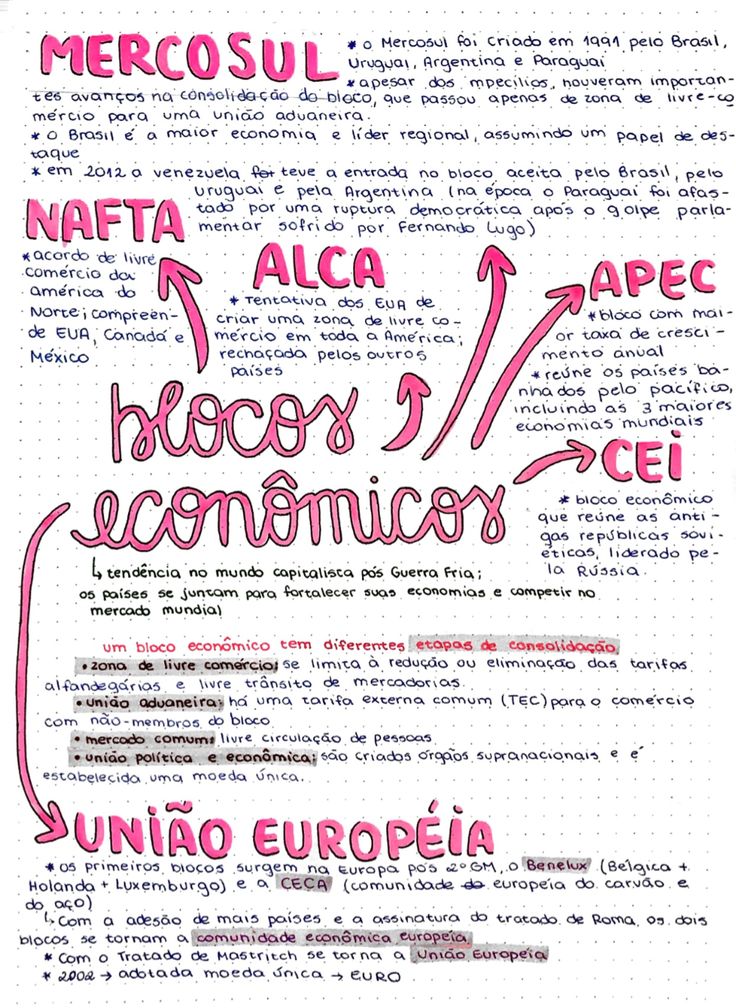 MERCOSUL
* o Mercosul foi criado em 1991 pelo Brasil,
Uruguai, Argentina e Paraguai
* apesar dos mpecílios, houveram importan-
tes avanços na consolidação do bloco, que passou apenas de zona de livre-co
mércio para uma união aduaneira.
* o Brasil é a maior economia e líder regional, assumindo um papel de des-
taque
* em 2012 a venezuela teve a entrada no bloco aceita pelo Brasil, pelo
uruguai e pela Argentina (na época o Paraguai foi afas-
tado por uma ruptura democrática após o golpe parla-
mentar sofrido por Fernando Lugo)
NAFTA
* acordo de livre
comércio da
América do
Norte; compreen-
de EUA, Canadá e
México
ALCA
* Tentativa dos EUA de
criar uma zona de livre co-
mércio em toda a América;
rechaçada pelos outros
países
APEC
* bloco com mai-
or taxa de cresci-
mento anual
* reúne os países ba-
nhados pelo pacífico,
incluindo as 3 maiores
economias mundiais
blocos
econômicos
CEI
* bloco econômico
que reúne as anti-
gas repúblicas sovi-
éticas, liderado pe-
la Rússia.
↳ tendência no mundo capitalista pós Guerra Fria;
os países se juntam para fortalecer suas economias e competir no
mercado mundial
um bloco econômico tem diferentes etapas de consolidação
• zona de livre comércio: se limita à redução ou eliminação das tarifas
alfandegárias e livre trânsito de mercadorias.
• união aduaneira: há uma tarifa externa comum (TEC) para o comércio
com não-membros do bloco
• mercado comum: livre circulação de pessoas
• união política e econômica: são criados órgãos supranacionais e é
estabelecida uma moeda única.
UNIÃO EUROPÉIA
* os primeiros blocos surgem na Europa pós 2ª GM, o Benelux (Bélgica +
Holanda + Luxemburgo) e a CECA (comunidade do europeia do carvão e
do aço)
↳ Com a adesão de mais países e a assinatura do tratado de Roma, os dois
blocos se tornam a comunidade econômica europeia
* Com o Tratado de Mastritch se torna a União Européia
* 2002 → adotada moeda única → EURO